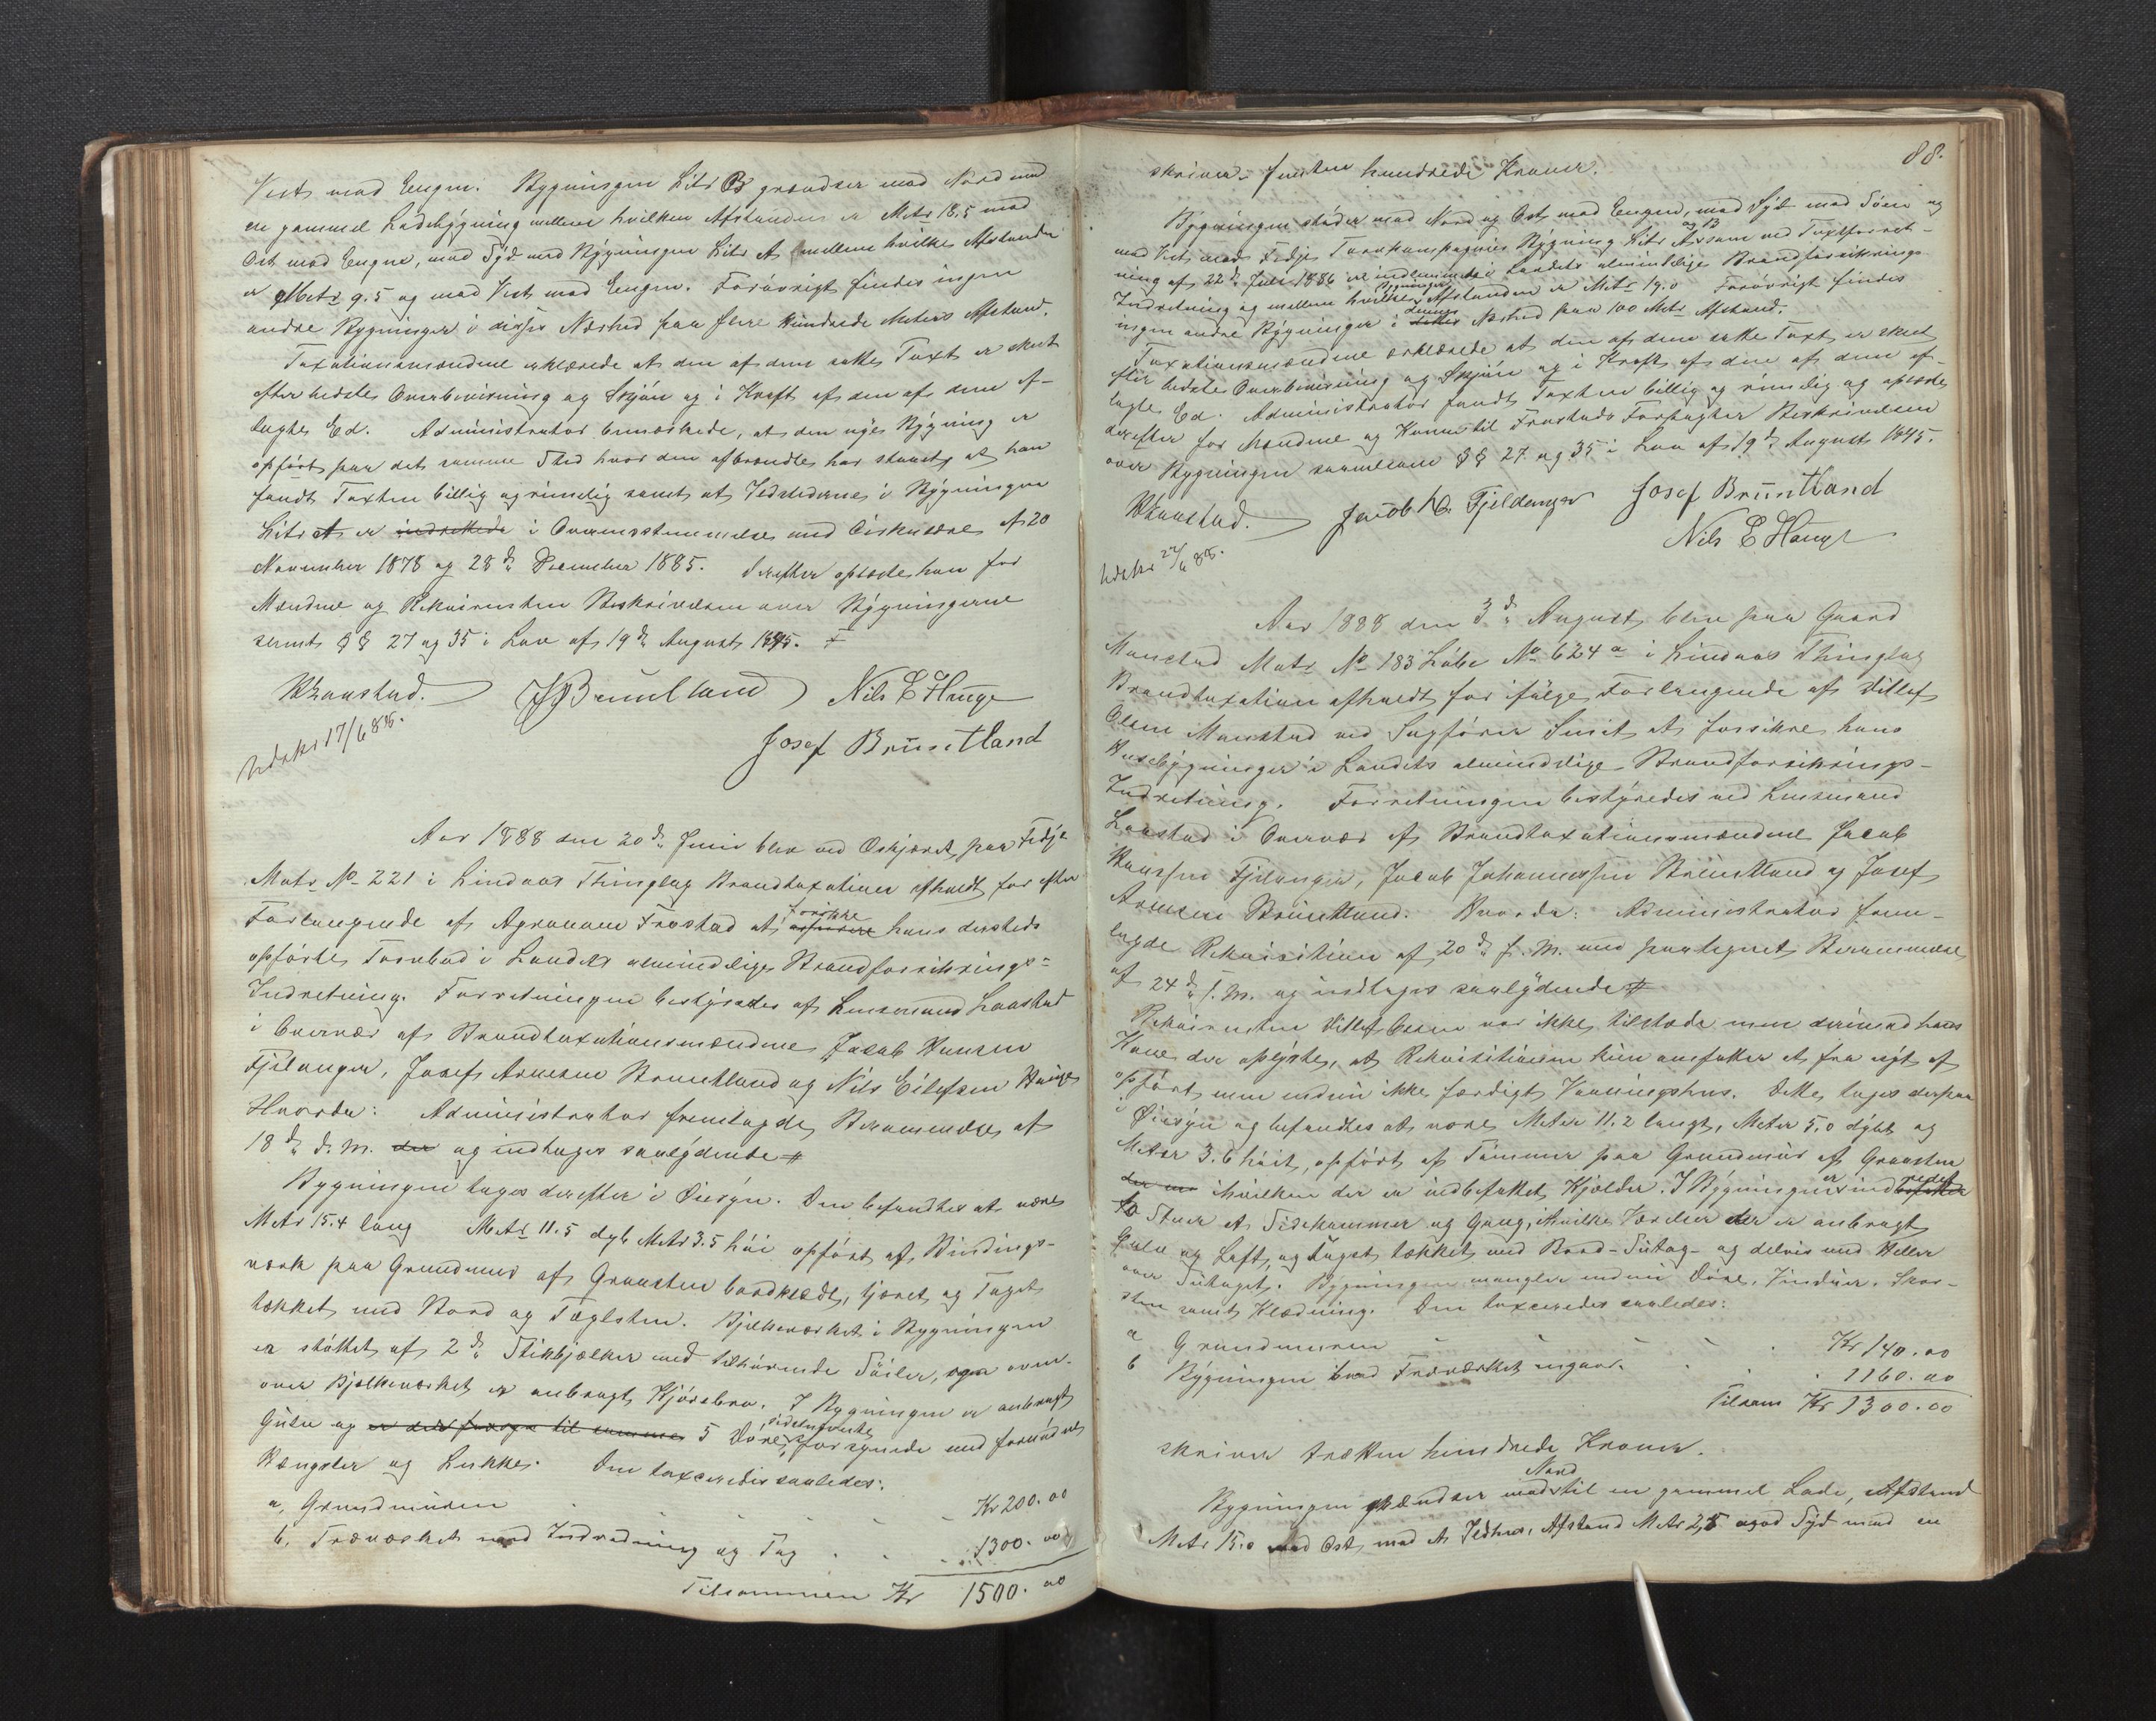 Vest mod Engen. Bygningen Litr B grændser mod Nord mod
en gammel Ladebygning mellem hvilken Afstanden er Metr 18.5 mod
Ost mod Engen, mod Syd mod Bygningen Litr A mellem hvilke Afstanden
er Metr 9.5 og mod Vest mod Engen. Forøvrigt findes ingen
andre Bygninger i disses Nærhed paa flere hundrede Meters Afstand.
Taxationsmændene erklærede at den af dem satte Taxt er skeet
efter bedste Overbevisning og Skjøn og i Kraft af den af dem af-
lagte Ed. Administrator bemærkede, at den nye Bygning er
opført paa det samme Sted hvor den afbrændte har staaet, at han
fandt Taxten billig og rimelig samt at Ildstederne i Bygningen
Litr A er indrettede i Overensstemmelse med Cirkulære af 20
November 1878 og 28de December 1885. Derefter oplæste han for
Mændene og Rekvirenten Beskrivelsen over Bygningerne
samt §§ 27 og 35 i Lov af 19de August 1845.
Laastad. J J Bruntland Nils E Hauge
Josef Bruntland
Udskr 17/6 88.
Aar 1888 den 20de Juni blev ved Oskjæret paa Fedje
Matr No 221 i Lindaas Thinglag Brandtaxation afholdt for efter
Forlangende af Agronom Frostad at forsikre hans dersteds
opførte Torvbod i Landets almindelige Brandforsikrings-
Indretning. Forretningen bestyredes af Lensmand Laastad
i Overvær af Brandtaxationsmændene Jacob Hansen
Fjelanger, Josef Arnesen Bruntland og Nils Eilefsen Hauge
Hvorda: Administrator fremlagde Berammelse af
18de d. M. der og indtages saalydende #
Bygningen toges derefter i Øiesyn. Den befandtes at være
Metr 15.4 lang Metr 11.5 dyb Metr 3.5 høi opført af Bindings-
værk paa Grundmur af Graasten bordklædt, tjæret og Taget
tækket med Bord og Tagsten. Bjelkeværket i Bygningen
er støttet af 2de Stikbjælker med tilhørende Søiler, og oven-
over Bjelkeværket er anbragt Kjørebro. I Bygningen er anbragt
Gulv og er der forøvrigt til samme 5 Døre, sidstnævnte forsynede med fornødne
Hængsler og Lukke. Den taxeredes saaledes:
a, Grundmuren Kr 200.00
b, Træværket med Indredning og Tag 1300.00
Tilsammen Kr 1500.00
88.
skriver femten hundrede Kroner.
Bygningen støder mod Nord og Ost mod Engen, mod Syd mod Søen og
mod Vest mod Fedje Torvkompagnies Bygning Litr A og B som ved Taxtforret-
ning af 22de Juli 1886 er indlemmede i Landets almindelige Brandforsikrings-
Indretning og mellem hvilke Bygninger Afstanden er Metr 19.0 Forøvrigt findes
ingen andre Bygninger i dennes Nærhed paa 100 Metr Afstand.
Taxationsmændene erklærede at den af dem satte Taxt er skeet
efter bedste Overbevisning og Skjøn og i Kraft af den af dem af-
lagte Ed. Administrator fandt Taxten billig og rimelig og oplæste
derefter for Mændene og Kone til Frostads Forpagter Beskrivelsen
over Bygningen saavelsom §§ 27 og 35 i Lov af 19de August 1845.
Laastad. Jacob H. Fjeldanger Josef Bruntland
Nils E Hauge
Udskr 27/6 88.
Aar 1888 den 3de August, blev paa Gaard
Monstad Matr No 183 Løbe No 624a i Lindaas Thinglag
Brandtaxation afholdt for ifølge Forlangende af Ditlef
Olsen Monstad ved Sagfører Smit at forsikre hans
Husebygninger i Landets almindelige Brandforsikrings-
Indretning. Forretningen bestyredes ved Lensmand
Laastad i Overvær af Brandtaxationsmændene Jacob
Hansen Fjelanger, Jacob Johannessen Bruntland og Josef
Arnesen Bruntland. Hvorda: Administrator frem-
lagde Rekvisition af 20de f. M. med paategnet Berammelse
af 24de f. M. og indtages saalydende #
Rekvirenten Ditlef Olsen var ikke tilstede men derimod hans
Kone der oplyste, at Rekvisitionen kun omfatter et fra nyt af
opført men endnu ikke færdigt Vaaningshus. Dette toges derpaa
i Øiesyn og befandtes at være Meter 11.2 langt, Meter 5.0 dybt og
Meter 3.6 høit, opført af Tømmer paa Grundmur af Graasten
der er i hvilken der er indbefattet Kjelder. I Bygningen er indredet
to Stuer et Sidekammer og Gang, i hvilke Værelser der er anbragt
Gulv og Loft, og Taget tækket med Bord - Sutag - og delvis med Heller
over Sutaget. Bygningen mangler endnu Døre, Vinduer, Skor-
sten samt Klædning. Den taxeredes saaledes:
a Grundmuren Kr 140.00
b Bygningen hvad Træværket angaar. 1160.00
Tilsam Kr 1300.00
skriver tretten hundrede Kroner.
Bygningen grændser mod Nord til en gammel Lade, Afstand
Metr 15.0 mod Ost, mod et Ildhus, Afstand Metr 2,5 mod Syd mod en